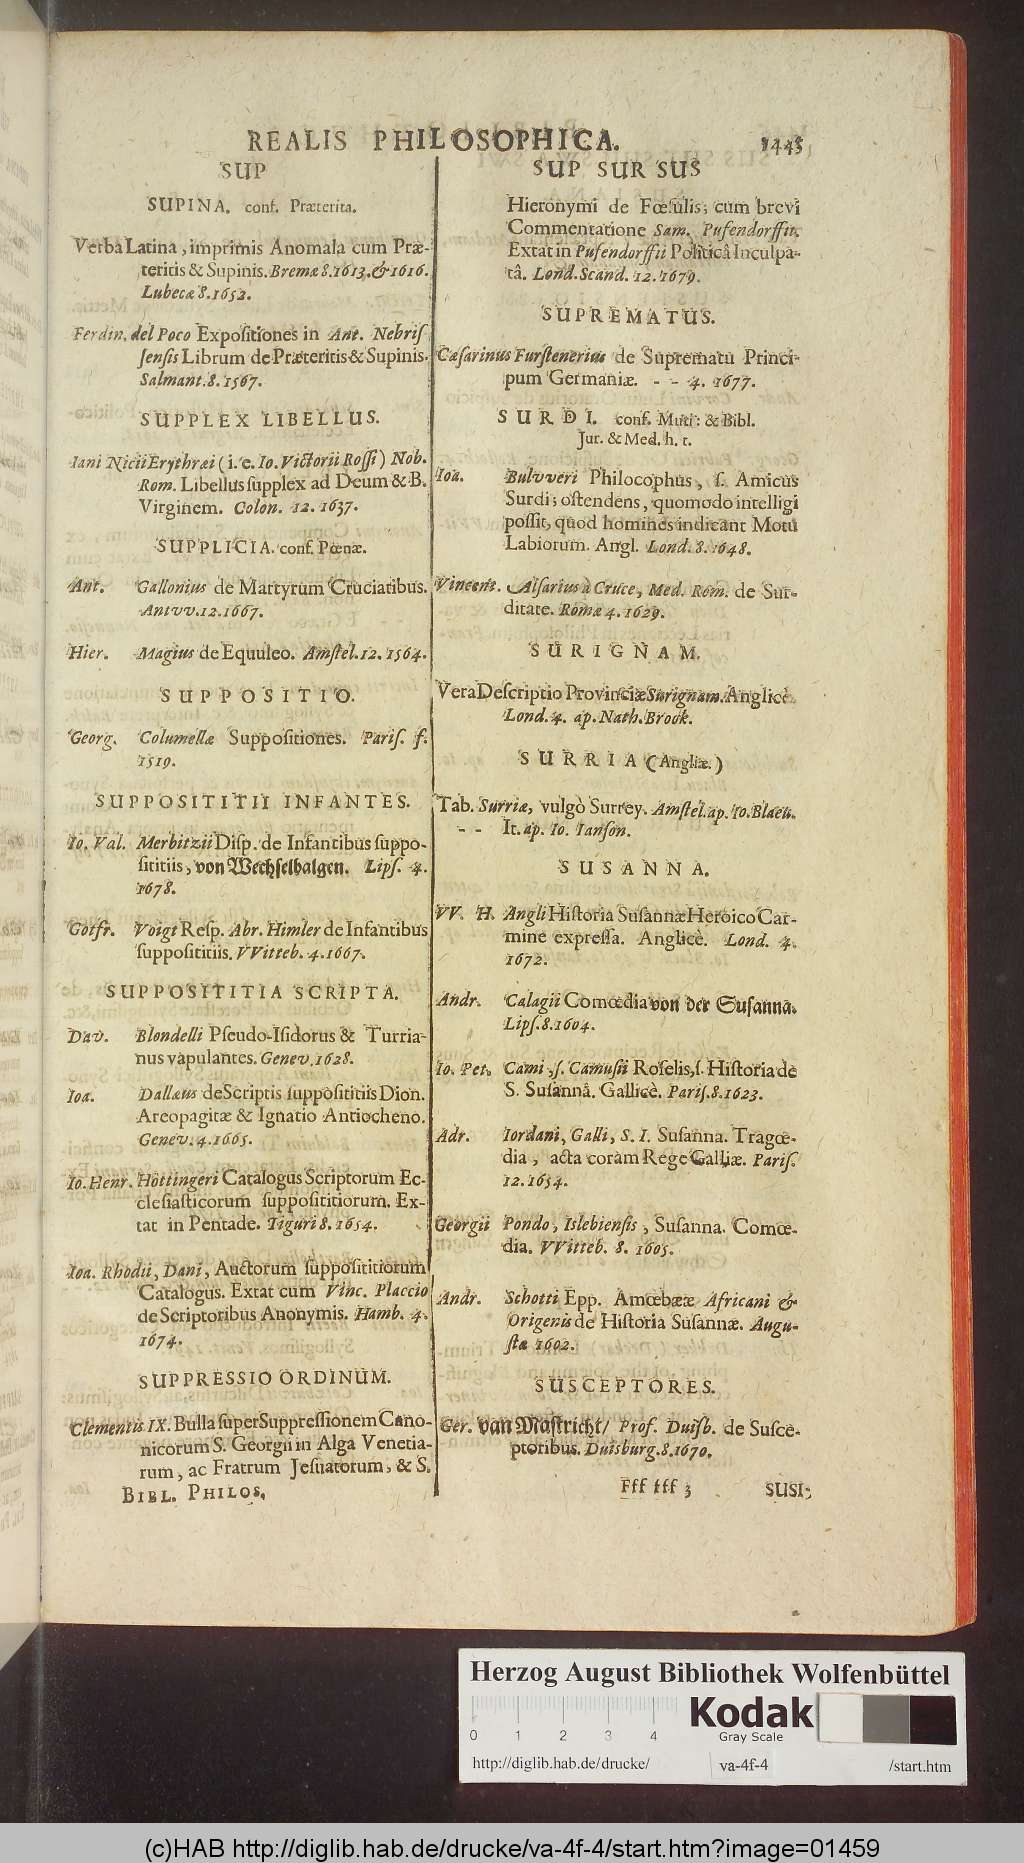 REALIS PHILOSOPHICA. 1445
SUP
SUPINA. conf. Præterita.
Verba Latina, imprimis Anomala cum Præ-
teritis & Supinis. Bremæ 8. 1613. & 1616.
Lubecæ 8. 1652.
Ferdin. del Poco Expositiones in Ant. Nebris
sensis Librum de Præteritis & Supinis.
Salmant. 8. 1567.
SUPPLEX LIBELLUS.
Iani Nicii Erythræi (i. e. Io. Victorii Rossi) Nob.
Rom. Libellus supplex ad Deum & B.
Virginem. Colon. 12. 1637.
SUPPLICIA. conf. Pœnæ.
Ant. Gallonius de Martyrum Cruciatibus.
Antvv. 12. 1667.
Hier. Magius de Equuleo. Amstel. 12. 1564.
SUPPOSITIO.
Georg. Columellæ Suppositiones. Paris. f.
1519.
SUPPOSITITII INFANTES.
Io. Val. Merbitzii Disp. de Infantibus suppo-
sititiis, von Wechselbalgen. Lips. 4.
1678.
Gotfr. Voigt Resp. Abr. Himler de Infantibus
supposititiis. VVitteb. 4. 1667.
SUPPOSITITIA SCRIPTA.
Dav. Blondelli Pseudo-Isidorus & Turria-
nus vapulantes. Genev. 1628.
Ioa. Dallæus de Scriptis supposititiis Dion.
Areopagitæ & Ignatio Antiocheno.
Genev. 4. 1665.
Io. Henr. Hottingeri Catalogus Scriptorum Ec-
clesiasticorum supposititiorum. Ex-
tat in Pentade. Tiguri 8. 1654.
Ioa. Rhodii, Dani, Auctorum supposititiorum
Catalogus. Extat cum Vinc. Placcio
de Scriptoribus Anonymis. Hamb. 4.
1674.
SUPPRESSIO ORDINUM.
Clementis IX. Bulla super Suppressionem Cano-
nicorum S. Georgii in Alga Venetia-
rum, ac Fratrum Jesuatorum, & S.
BIBL. PHILOS.
SUP SUR SUS
Hieronymi de Fœsulis; cum brevi
Commentatione Sam. Pufendorffii.
Extat in Pufendorffii Politicâ Inculpa-
tâ. Lond. Scand. 12. 1679.
SUPREMATUS.
Cæsarinus Furstenerius de Suprematu Princi-
pum Germaniæ. - - 4. 1677.
SURDI. conf. Muti: & Bibl.
Jur. & Med. h. t.
Ioa. Bulvveri Philocophus, s. Amicus
Surdi; ostendens, quomodo intelligi
possit, quod homines indicant Motu
Labiorum. Angl. Lond. 8. 1648.
Vincent. Alsarius à Cruce, Med. Rom. de Sur-
ditate. Romæ 4. 1629.
SURIGNAM.
Vera Descriptio Provinciæ Surignam. Anglicè.
Lond. 4. ap. Nath. Brook.
SURRIA (Angliæ.)
Tab. Surriæ, vulgò Surrey. Amstel. ap. Io. Blaeu.
- - It. ap. Io. Ianson.
SUSANNA.
VV. H. Angli Historia Susannæ Heroico Car-
mine expressa. Anglicè. Lond. 4.
1672.
Andr. Calagii Comœdia von der Susanna.
Lips. 8. 1604.
Io. Pet. Cami, s. Camusii Roselis, s. Historia de
S. Susannâ. Gallicè. Paris. 8. 1623.
Adr. Iordani, Galli, S. I. Susanna. Tragœ-
dia, acta coràm Rege Galliæ. Paris.
12. 1654.
Georgii Pondo, Islebiensis, Susanna. Comœ-
dia. VVitteb. 8. 1605.
Andr. Schotti Epp. Amœbææ Africani &
Origenis de Historia Susannæ. Augu-
stæ 1602.
SUSCEPTORES.
Ger. van Mastricht/ Prof. Duisb. de Susce-
ptoribus. Duisburg. 8. 1670.
Fff fff 3 SUSI-
Herzog August Bibliothek Wolfenbüttel
0 1 2 3 4
Kodak
Gray Scale
http://diglib.hab.de/drucke/ va-4f-4 /start.htm
(c)HAB http://diglib.hab.de/drucke/va-4f-4/start.htm?image=01459